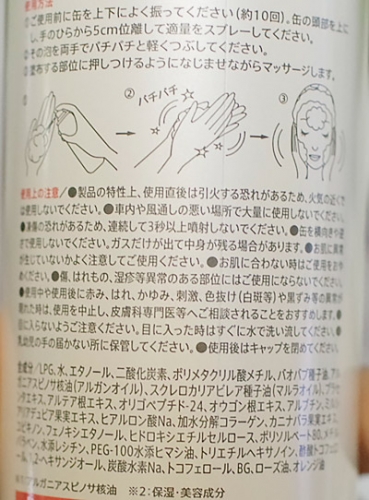 使用方法
①ご使用前に缶を上下によく振ってください(約10回)。缶の頭部を上に
し、手のひらから5cm位離して適量をスプレーしてください。
②その泡を両手でパチパチと軽くつぶしてください。
③塗布する部位に押しつけるようになじませながらマッサージします。
① ② パチパチ ③
使用上の注意/●製品の特性上、使用直後は引火する恐れがあるため、火気の近くで
は使用しないでください。●車内や風通しの悪い場所で大量に使用しないでください。
●凍傷の恐れがあるため、連続して3秒以上噴射しないでください。●缶を横向きや逆
さで使用しないでください。ガスだけが出て中身が残る場合があります。●お肌に異常
が生じていないかよく注意してご使用ください。●お肌に合わない時はご使用をおや
めください。●傷、はれもの、湿疹等異常のある部位にはご使用にならないでください。
●使用中や使用後に赤み、はれ、かゆみ、刺激、色抜け(白斑等)や黒ずみ等の異常が
現れた時は、使用を中止し、皮膚科専門医等へご相談されることをおすすめします。●
目に入らないようご注意ください。目に入った時はすぐに水で洗い流してください。●
乳幼児の手の届かない所に保管してください。●使用後はキャップを閉めてください。
全成分/LPG、水、エタノール、二酸化炭素、ポリメタクリル酸メチル、バオバブ種子油、アル
ガニアスピノサ核油(アルガンオイル)、スクレロカリアビレア種子油(マルラオイル)、プラセ
ンタエキス、アルテア根エキス、オリゴペプチド-24、オウゴン根エキス、アルブチン、
アリアデュビア果実エキス、ヒアルロン酸Na、加水分解コラーゲン、カニナバラ果実エキス、
ユビキノン、フェノキシエタノール、ヒドロキシエチルセルロース、ポリソルベート80、メチル
パラベン、水添レシチン、PEG-100水添ヒマシ油、トリエチルヘキサノイン、酢酸トコフェ
ロール、1,2-ヘキサンジオール、炭酸水素Na、トコフェロール、BG、ローズ油、オレンジ油
アルガニアスピノサ核油 ※2:保湿・美容成分